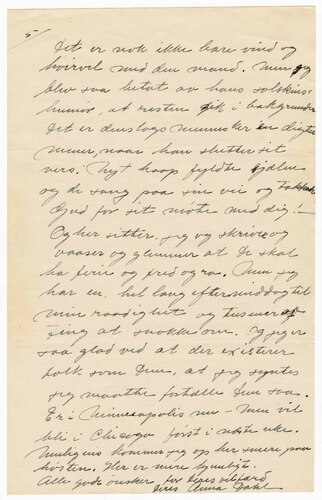 5-
Det er nok ikke bare vind og
hvirvel med den mand. Men jeg
blev saa betat av hans solskins-
humör, at resten gik i bakgrunden
Det er denslags mennesker en digter
mener, naar han slutter sit
vers: Nyt haap fyldte sjælen
og de sang paa sin vei og takket
Gud for sit møte med dig!—
Og her sitter jeg og skriver og
vaaser og glemmer at De skal
ha ferie og fred og ro. Men jeg
har en hel lang eftermiddag til
min raadighet og tusener af
ting at snakke om. Og jeg er
saa glad ved at der existerer
folk som Dem, at jeg syntes
jeg maatte fortælle Dem saa.
Er i Minneapolis nu — Men vil
bli i Chicago først i næste uke.
Muligens kommer jeg op her senere paa
høsten. Her er mere
Alle gode ønsker for Deres velfærd
Deres Anna Dahl